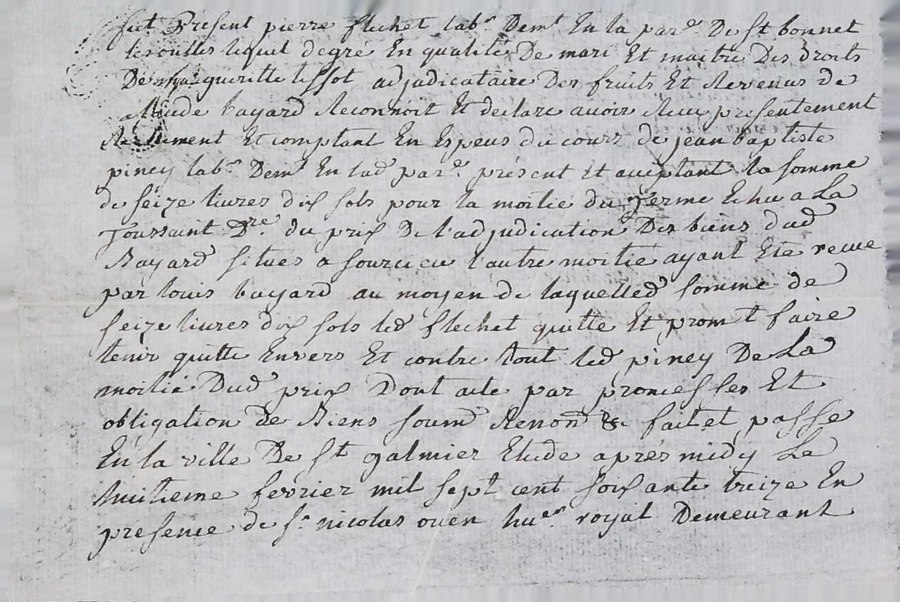 fut Present pierre flechet lab.r Dem.t En la par.e De St bonnet
les oulles lequel degré En qualité De mari Et maitre Des Droits
De margueritte tissot adjudicataire Des fruits Et Revenus de
Claude bayard Reconnoit Et declare avoir Recu presentement
Réellement Et comptant En Especes du cours de jean baptiste
piney lab.r Dem.t En lad par.e present Et aceptant la somme
de seize livres dix sols pour la moitié du Terme Echu a La
Toussaint D.re du prix De l'adjudication Des biens dud
Bayard situes a sourcieu l'autre moitié ayant Eté recue
par louis bayard au moyen de laquelled somme de
seize livres dix sols led flechet quitte Et promet faire
tenir quitte Envers Et contre tout led piney De La
moitié Dud prix Dont acte par promesses Et
obligation de Biens soumd Renond &c fait et passé
En la ville De St galmier Etude après midy Le
huitieme fevrier mil sept cent soixante treize En
presence de s.r nicolas ouen hu.er royal Demeurant